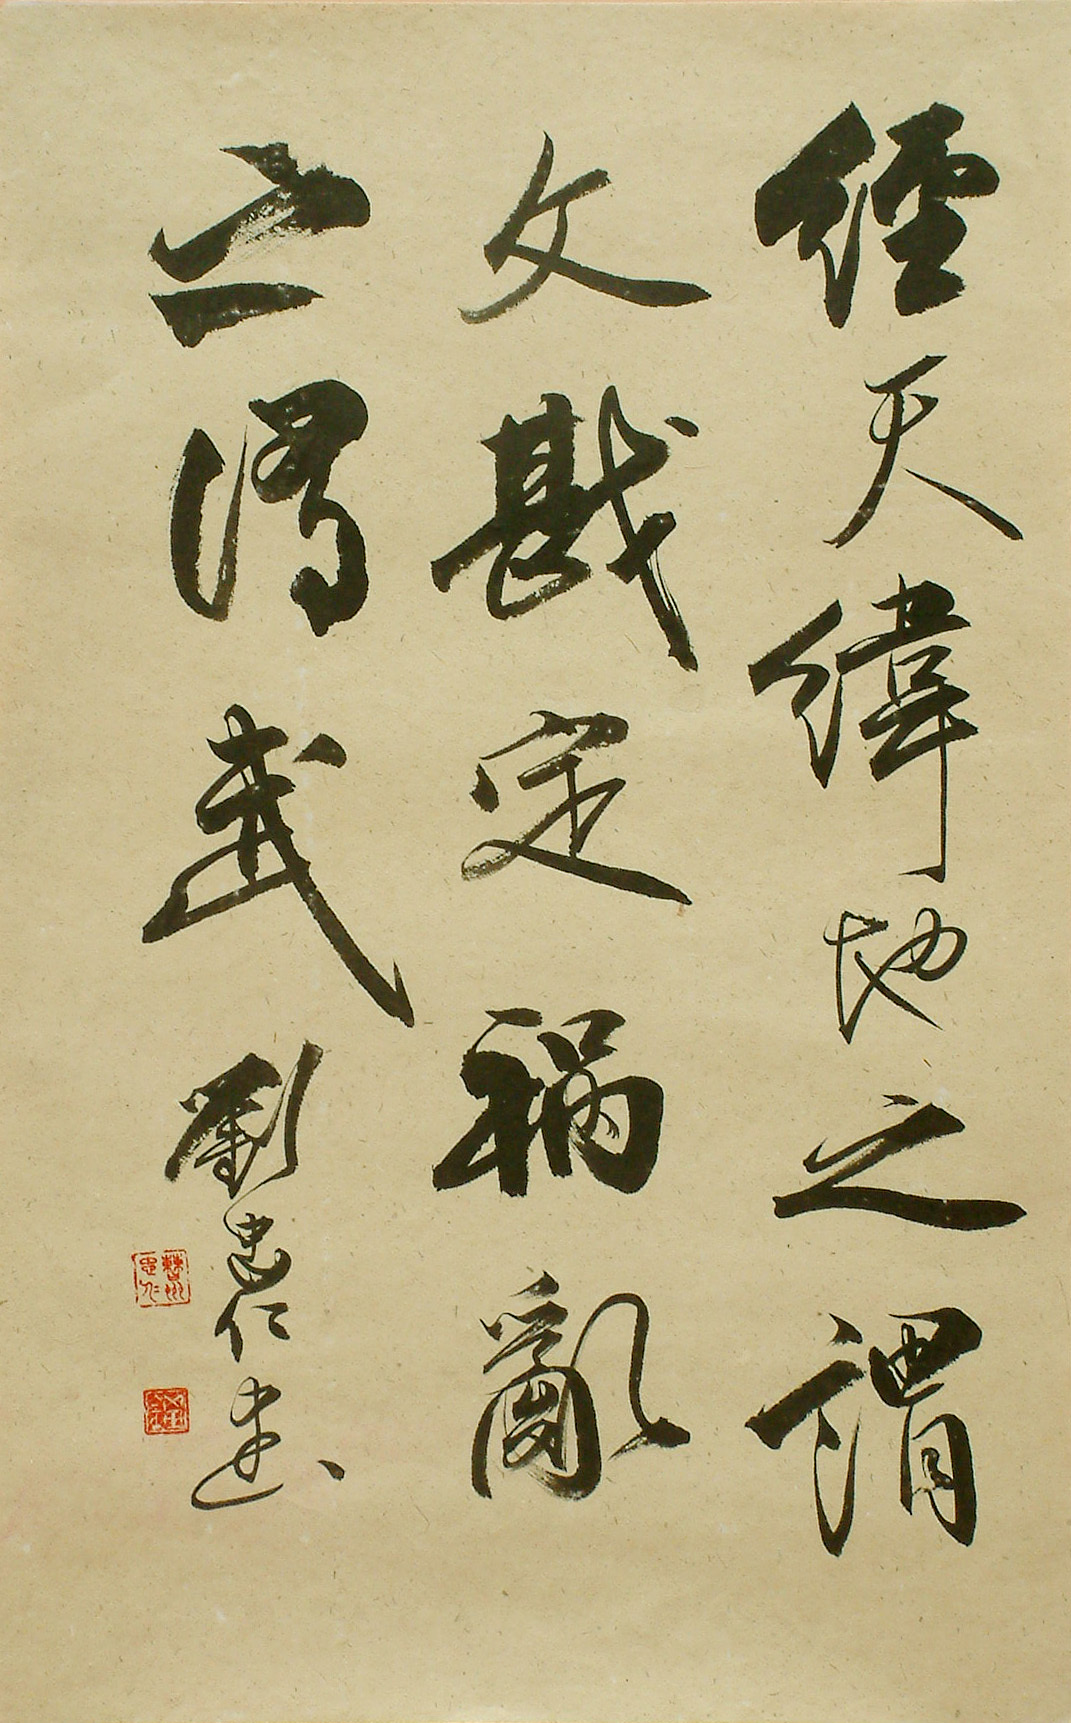 經天緯地之謂
文戡定禍亂
之謂武
劉忠仁書